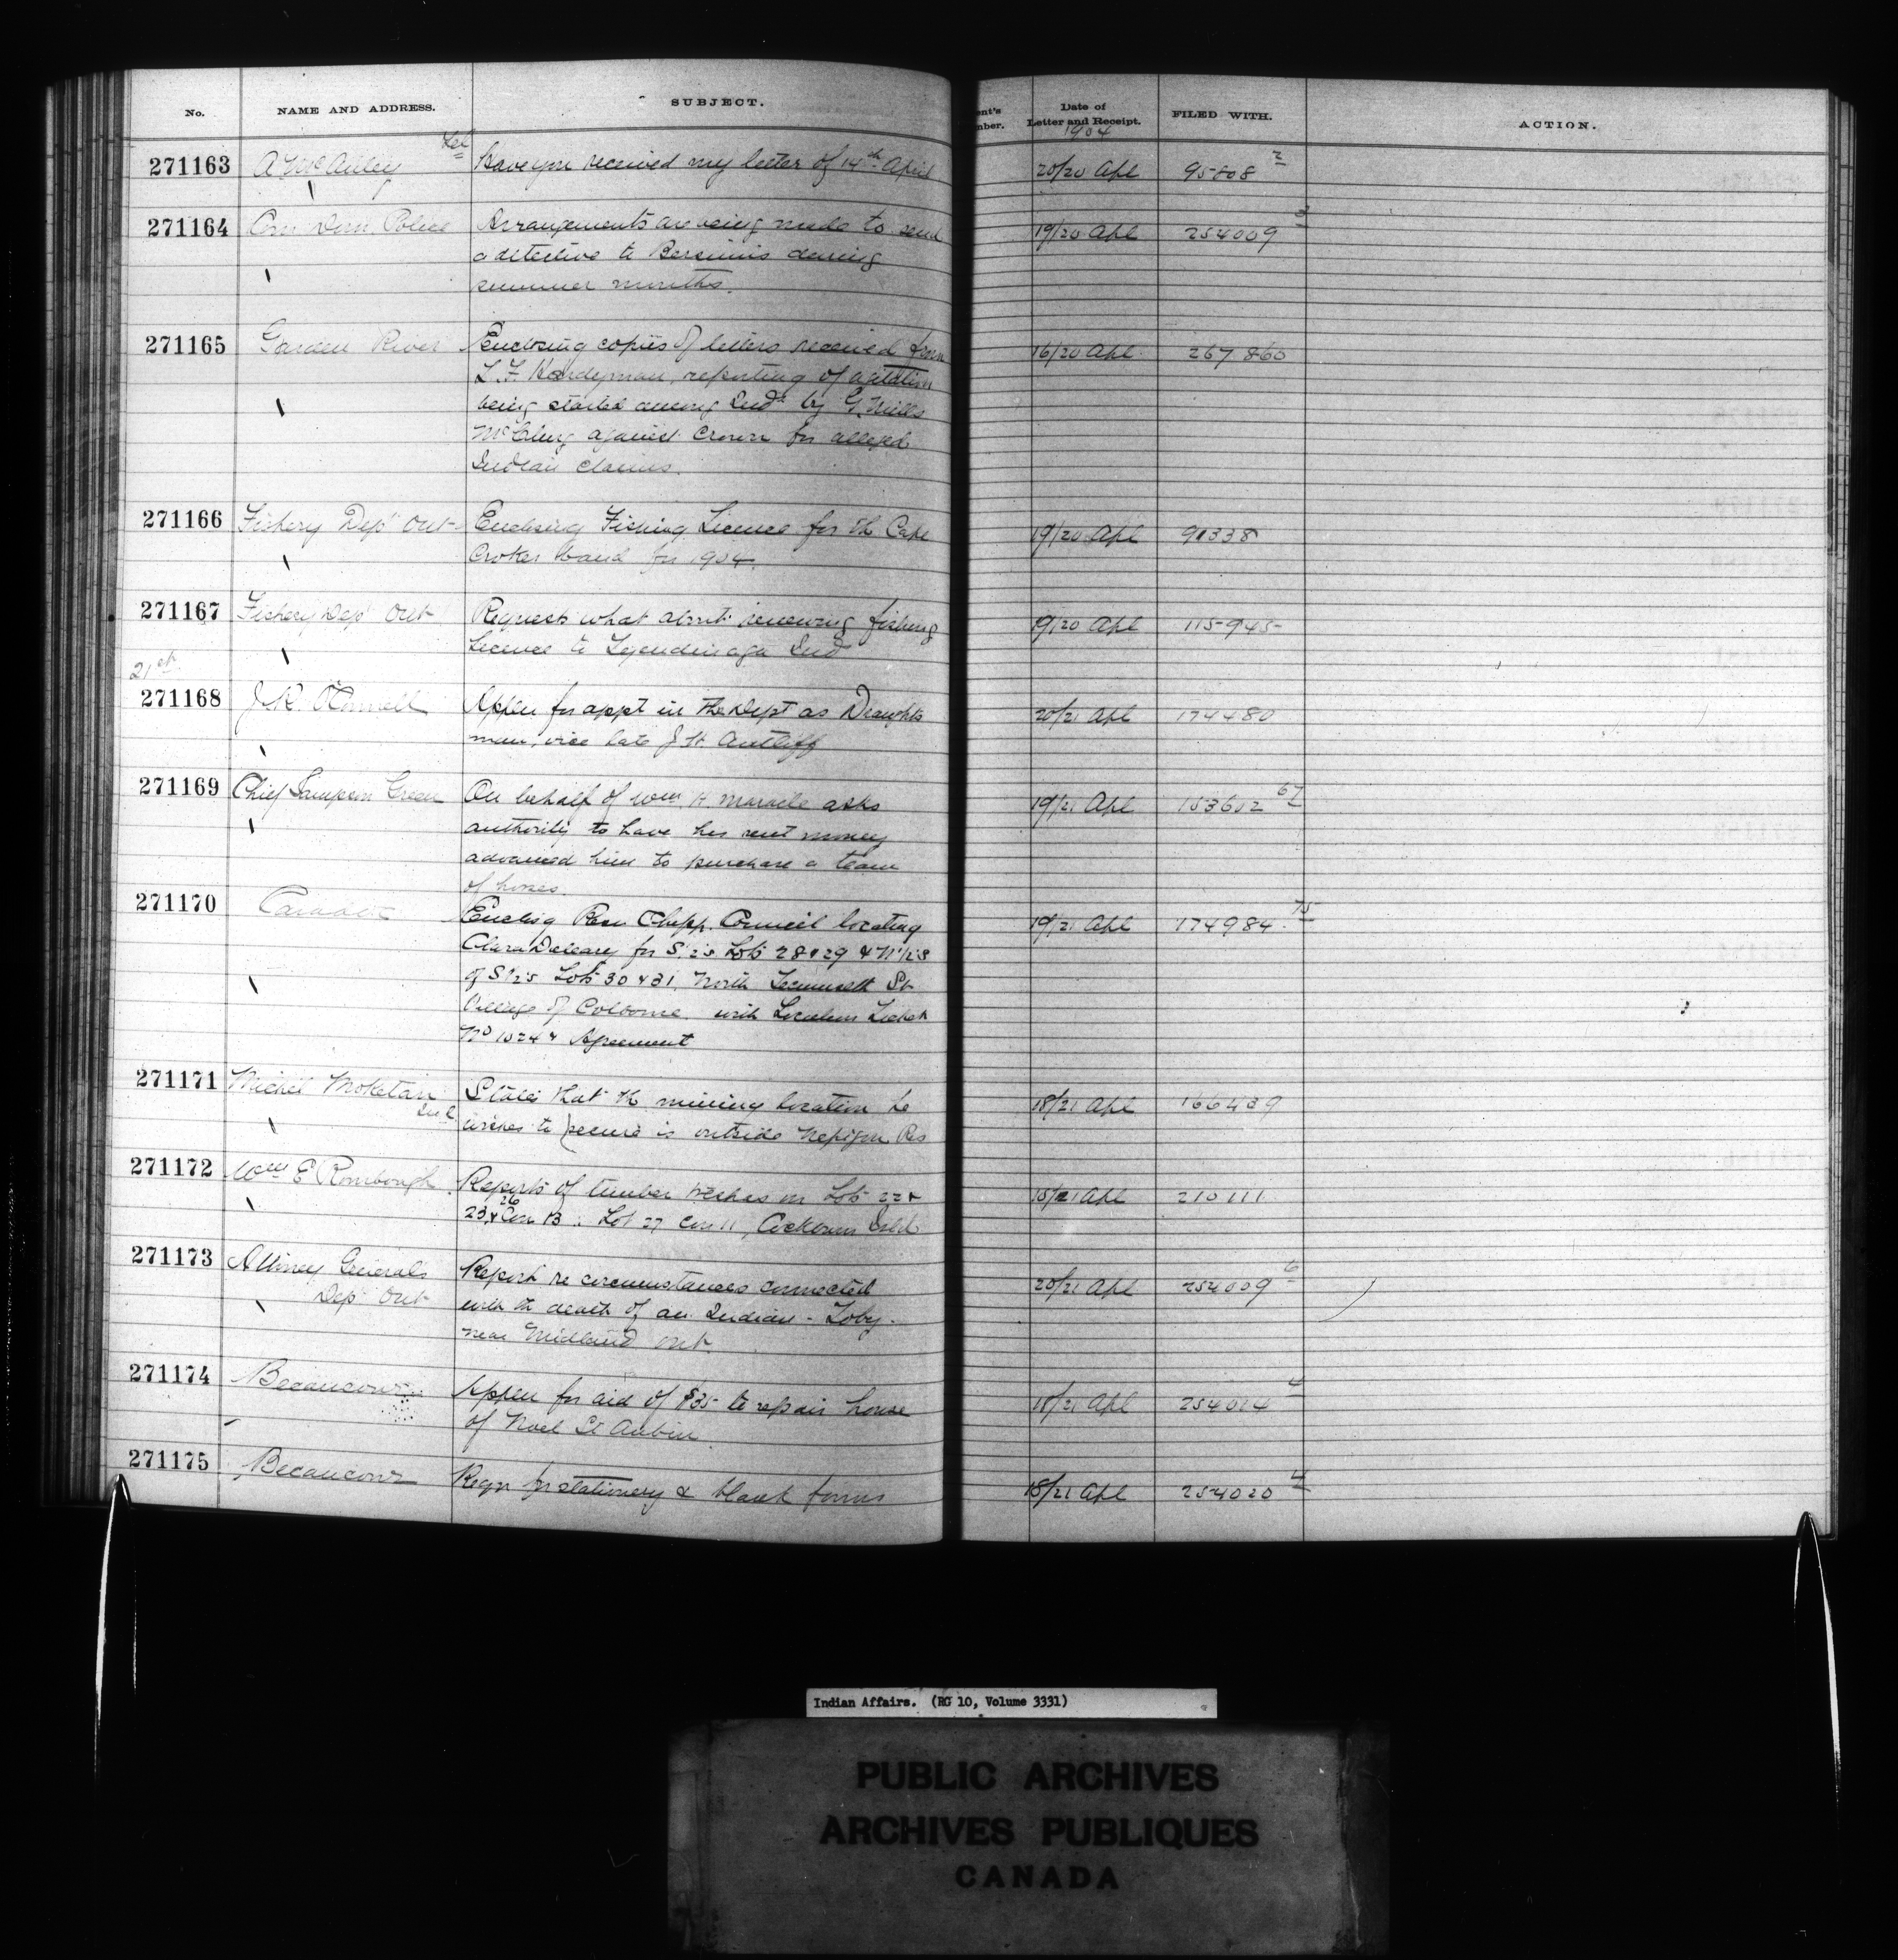 No. NAME AND ADDRESS. SUBJECT. ent's nber. Date of Letter and Receipt. FILED WITH. ACTION.
1904
271163 A McAuley Tel Have you received my letter of 14th April 20/20 Apl 95808 2
271164 Com Dom Police Arrangements are being made to send 19/20 Apl 254009 3
a detective to Bersimis during
summer months.
271165 Garden River Enclosing copies of letters received from 16/20 Apl 267860
L. F. Hardyman, reporting of agitation
being started among Inds by G. Mills
McClurg against Crown for alleged
Indian claims.
271166 Fishery Dept Ont Enclosing Fishing Licence for the Cape 19/20 Apl 91338
Croker band for 1904.
271167 Fishery Dept Ont Requests what about renewing fishing 19/20 Apl 115945
Licence to Tyendinaga Ind
21st
271168 J. R. O'Connell Appln for appt in the Dept as Draughts 20/21 Apl 174480
man, vice late J. H. Antliff
271169 Chief Sampson Green On behalf of Wm H Maracle asks 19/21 Apl 153602 67
authority to have his rent money
advanced him to purchase a team
of horses.
271170 Caradoc Enclsg Resn Chipp. Council locating 19/21 Apl 174984 75
Clara Deleary for S. 1/2s Lots 28 & 29 & N 1/2s
of S 1/2s Lots 30 & 31, North Tecumseth St
Village of Colborne. with Location Ticket
No 1024 & Agreement
271171 Michel States that the mining location he 18/21 Apl 166439
wishes to secure is outside Nepigon Res
271172 Wm E Rombough Reports of timber on Lots 22 & 18/21 Apl 210111
23 & 26 Con 13 : Lot 27 Con 11, Cockburn Isld
271173 Attorney General's Report re circumstances connected 20/21 Apl 254009 6
Dept Ont with the death of an Indian - Toby -
near Midland Ont.
271174 Becancour Appln for aid of $35 to repair house 18/21 Apl 254014 4
of Noel St Aubin
271175 Becancour Reqn for stationery & blank forms 18/21 Apl 254020 4
Indian Affairs. (RG 10, Volume 3331)
PUBLIC ARCHIVES
ARCHIVES PUBLIQUES
CANADA